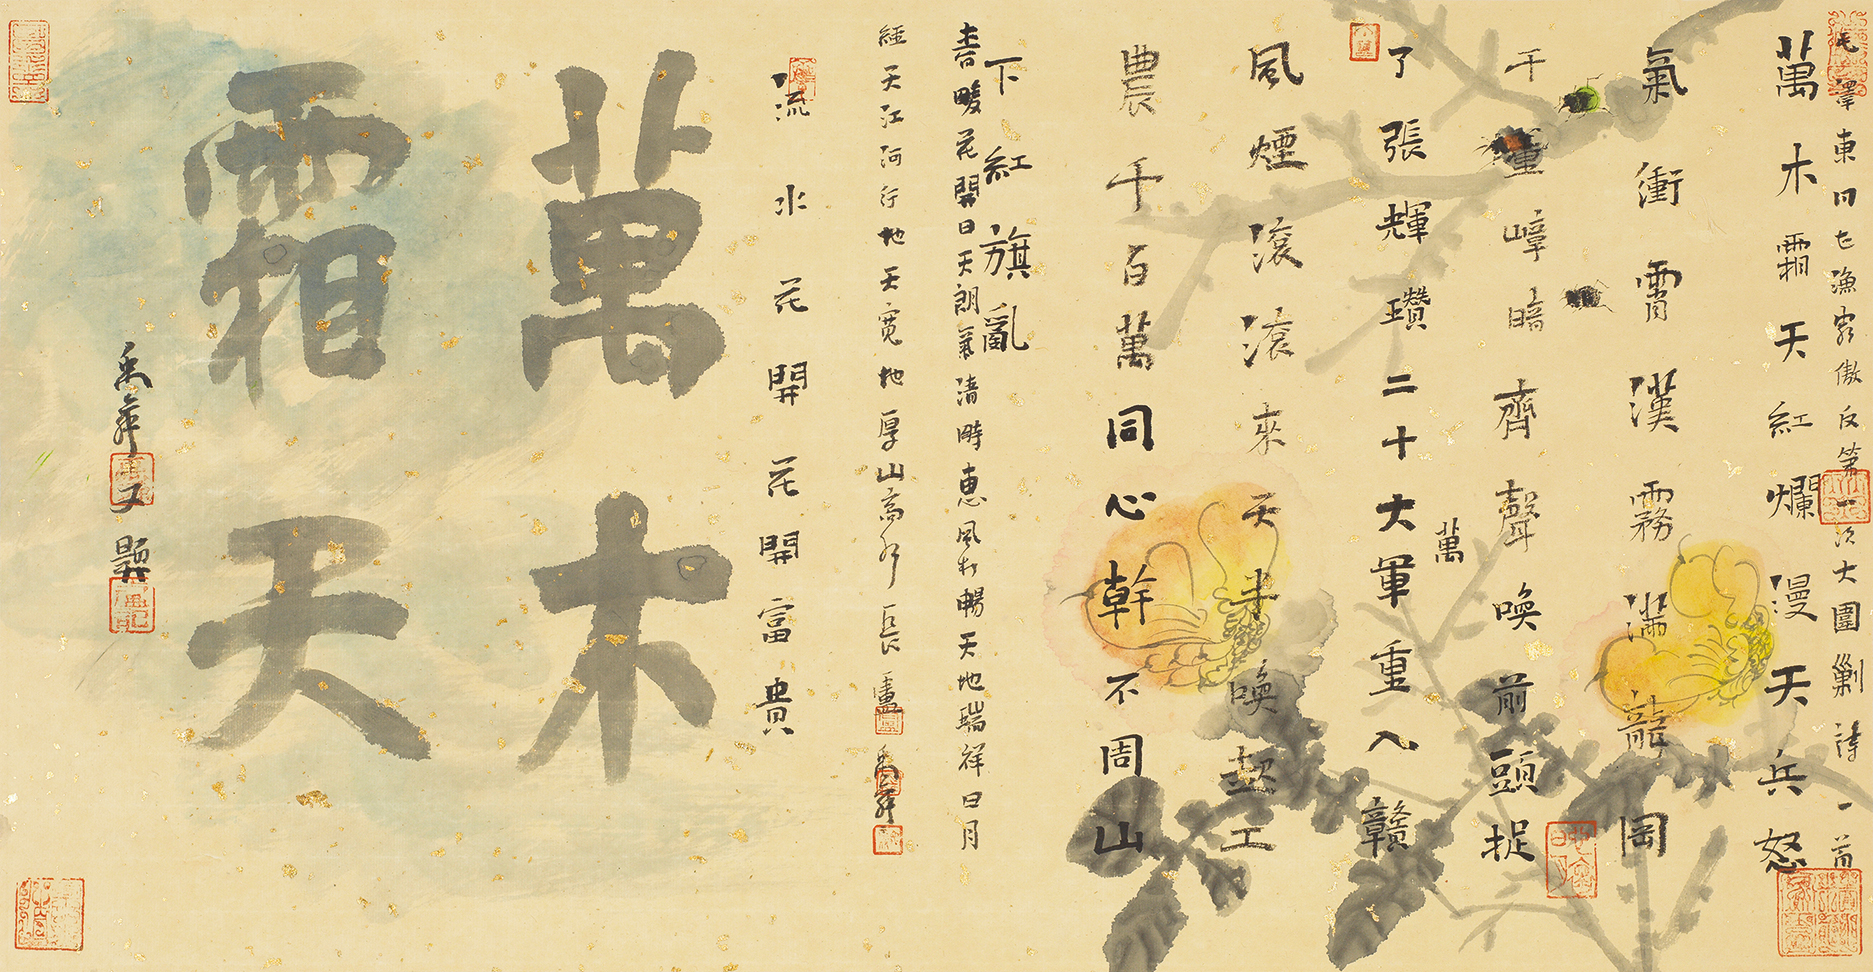 毛澤東漁家傲反第一次大圍剿詩一首
萬木霜天紅爛漫天兵怒
氣衝霄漢霧滿龍岡
千重嶂暗齊聲喚前頭捉
萬
了張輝瓚二十大軍重入贛
風煙滾滾來天半喚起工
農千百萬同心幹不周山
下紅旗亂
春暖花開日天朗氣清時惠風和暢天地瑞祥日月
經天江河行地天寬地厚山高水長盧禹舜
流水花開花開富貴
萬木
霜天
禹舜又題